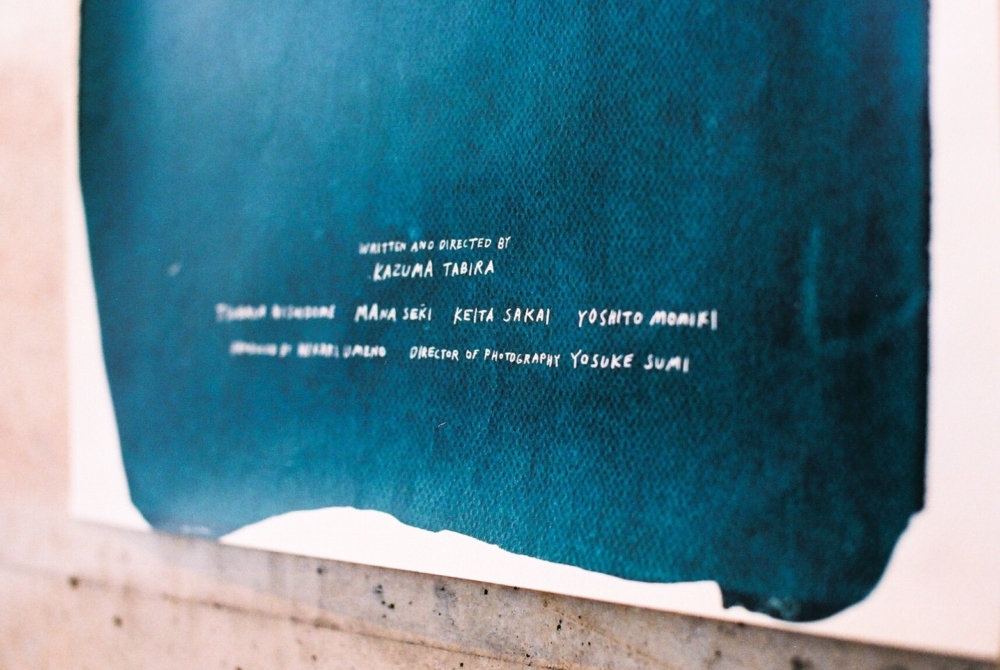 WRITTEN AND DIRECTED BY
KAZUMA TABIRA
MANA SEKI KEITA SAKAI YOSHITO MOMIKI
BY UMENO DIRECTOR OF PHOTOGRAPHY YOSUKE SUMI